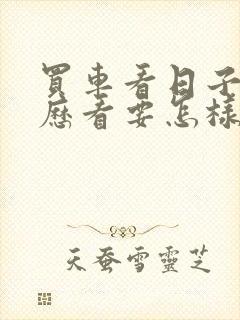 買車看日子
歷看要怎樣
天蚕雪靈芝